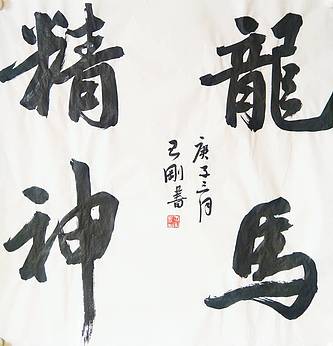 龍馬
精神
庚子三月
王剛書